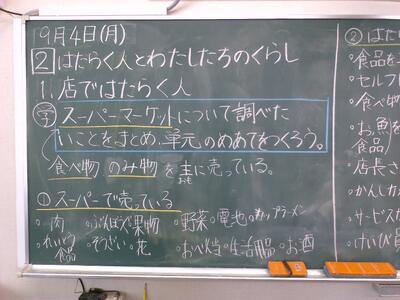 9月4日(月)
2 はたらく人とわたしたちのくらし
1. 店ではたらく人
学 スーパーマーケットについて調べた
いことをまとめ、単元のめあてをつくろう。
食べ物 のみ物を主に売っている。
おも
①スーパーで売っている
・肉 ・ぶんぼうぐ ・果物 ・野菜 ・電池 ・カップラーメン
・れいとう食品 ・そうざい ・花 ・おべん当 ・生活用品 ・お酒
②はたら
・食品を
・セルフ
・食べ物
・お魚を
食品
・店長さ
・かんしか
・サービス
・けいび員